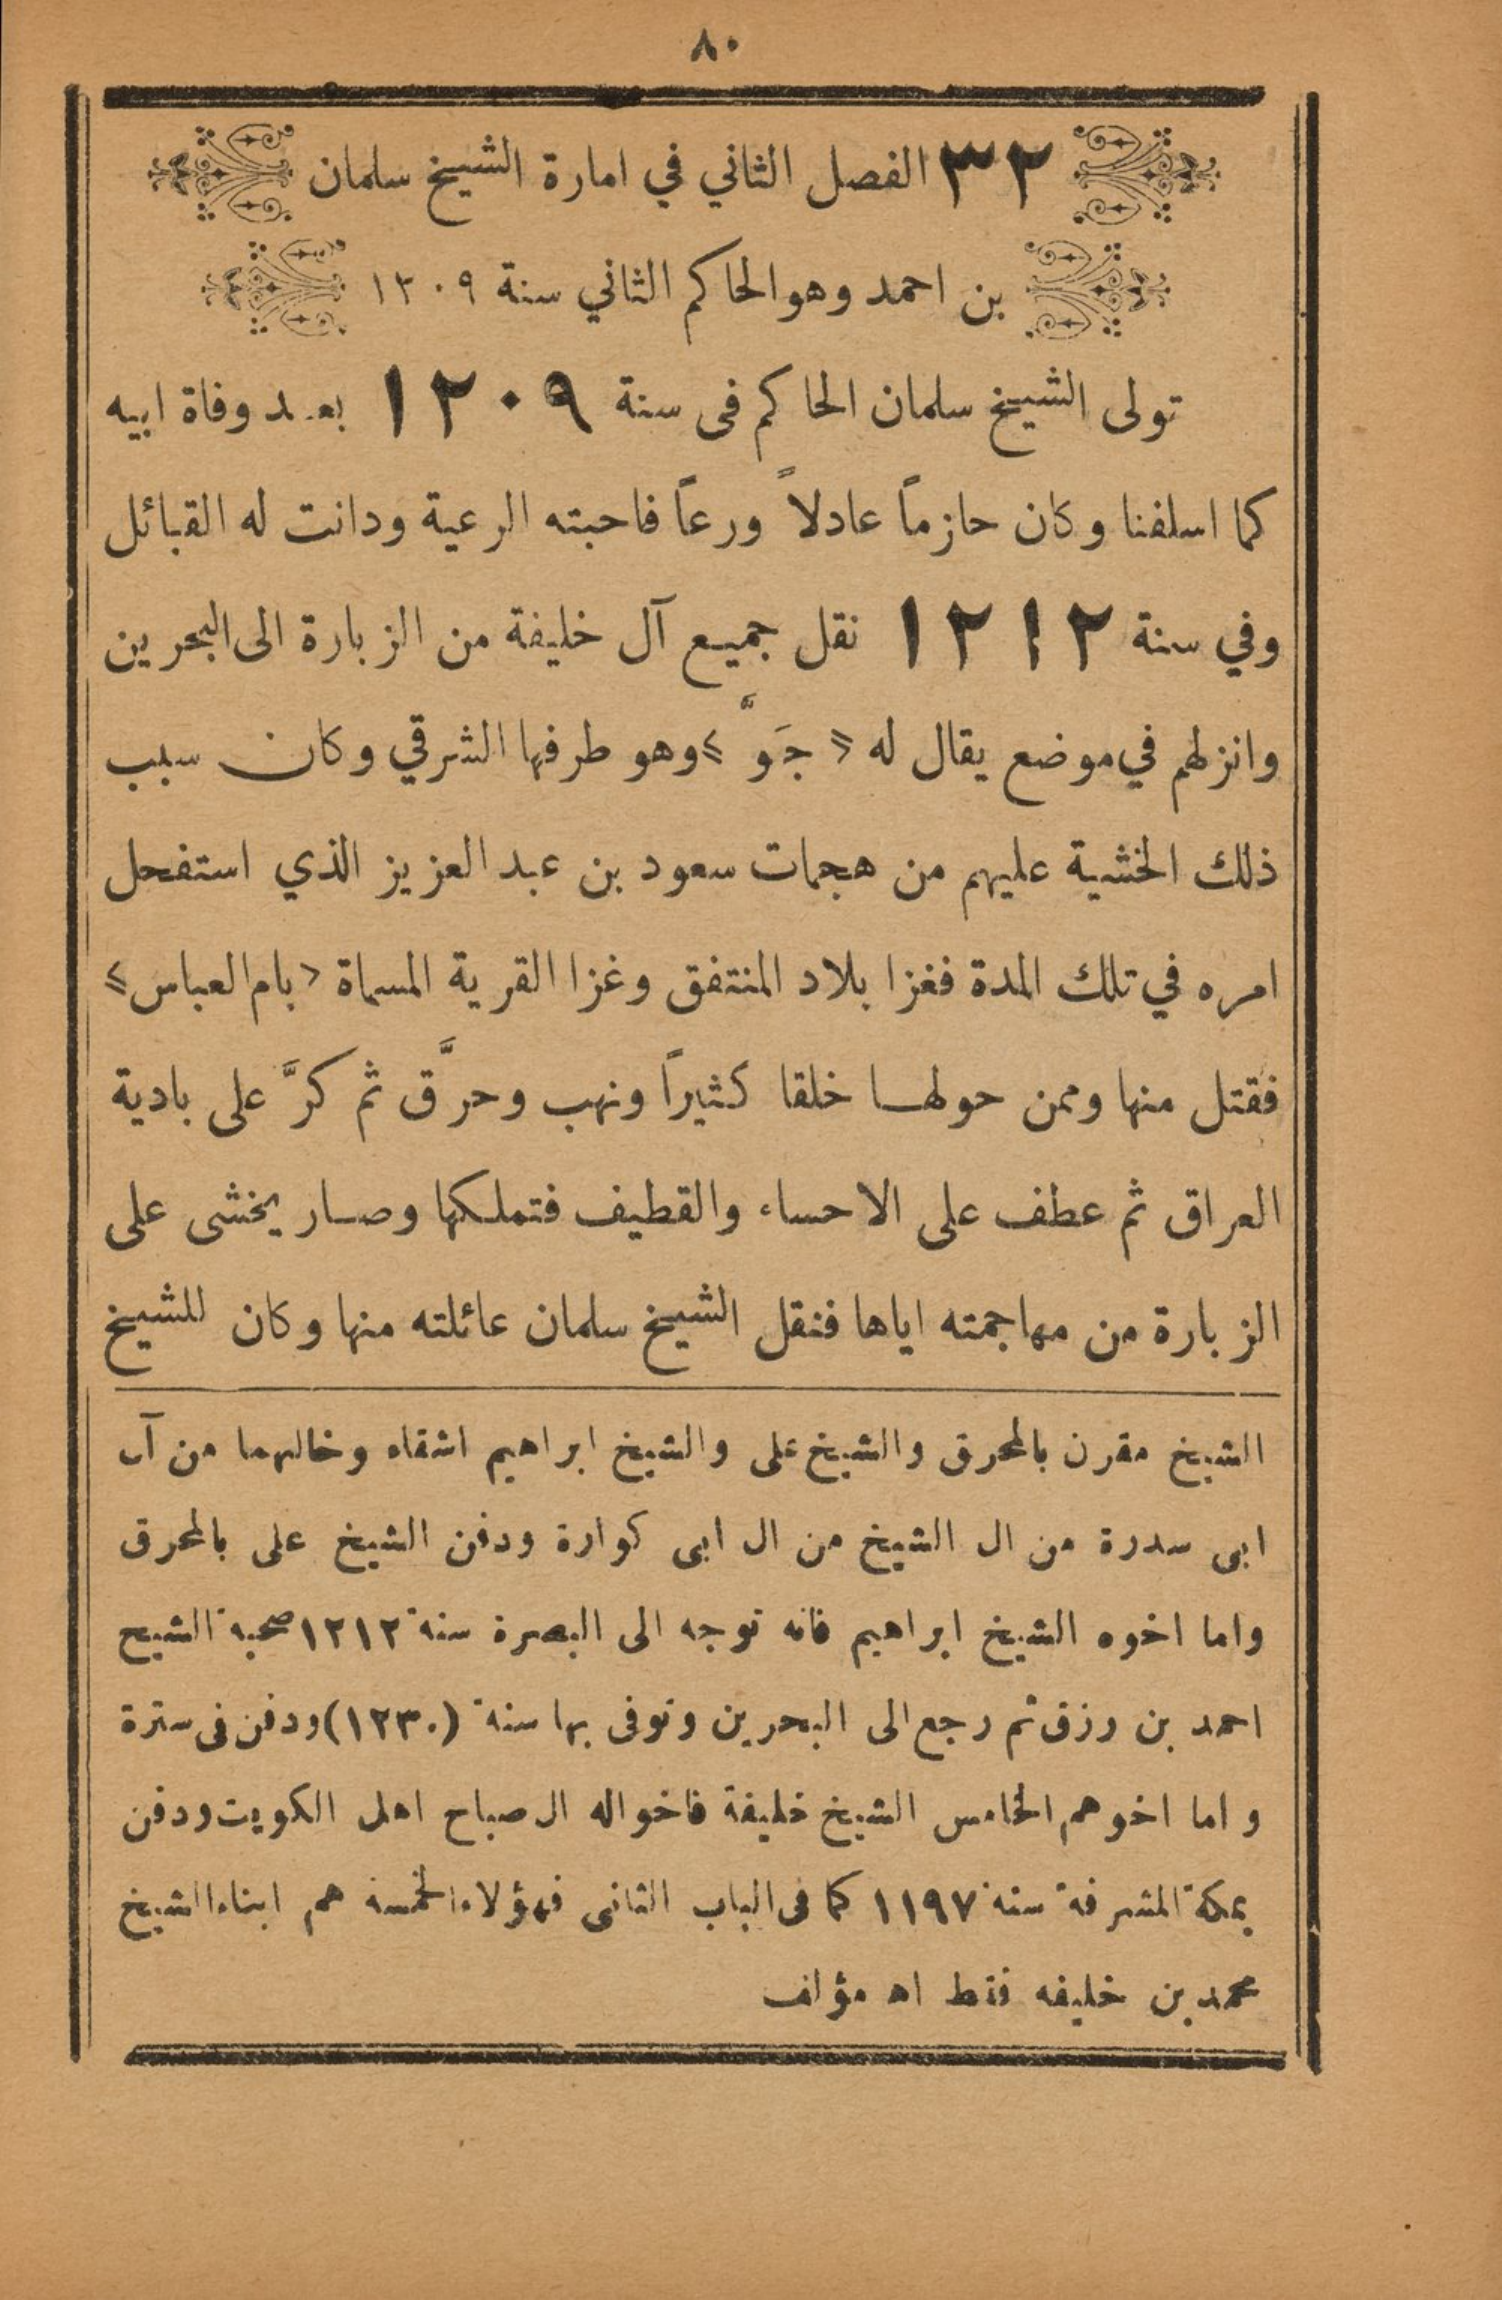 ٨٠
٣٢ الفصل الثاني في امارة الشيخ سلمان
بن احمد وهو الحاكم الثاني سنة ١٢٠٩
تولى الشيخ سلمان الحاكم فى سنة ١٢٠٩ بعد وفاة ابيه
كما اسلفنا وكان حازماً عادلاً ورعاً فاحبته الرعية ودانت له القبائل
وفي سنة ١٢١٢ نقل جميع آل خليفة من الزبارة الى البحرين
وانزلهم في موضع يقال له « جَوَّ » وهو طرفها الشرقي وكان سبب
ذلك الخشية عليهم من هجمات سعود بن عبد العزيز الذي استفحل
امره في تلك المدة فغزا بلاد المنتفق وغزا القرية المسماة « بام العباس »
فقتل منها وممن حولها خلقا كثيراً ونهب وحرَّق ثم كرَّ على بادية
العراق ثم عطف على الاحساء والقطيف فتملكها وصار يخشى على
الزبارة من مهاجمته اياها فنقل الشيخ سلمان عائلته منها وكان للشيخ
الشيخ مقرن بالمحرق والشيخ على والشيخ ابراهيم اشقاه وخالهما من آل
ابى سدرة من ال الشيخ من ال ابى كوارة ودفن الشيخ على بالمحرق
واما اخوه الشيخ ابراهيم فانه توجه الى البصرة سنة ١٢١٢ صحبة الشيح
احمد بن رزق ثم رجع الى البحرين وتوفى بها سنة (١٢٣٠) ودفن فى سترة
واما اخوهم الخامس الشيخ خليفة فاخواله ال صباح اهل الكويت ودفن
بمكة المشرفة سنة ١١٩٧ كما فى الباب الثانى فهؤلاء الخمسة هم ابناء الشيخ
محمد بن خليفه فقط اه مؤلف